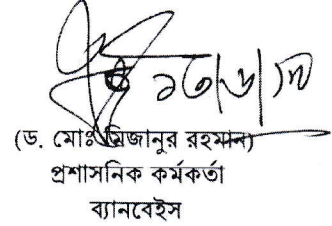 (ড. মোঃ মিজানুর রহমান)
প্রশাসনিক কর্মকর্তা
ব্যানবেইস